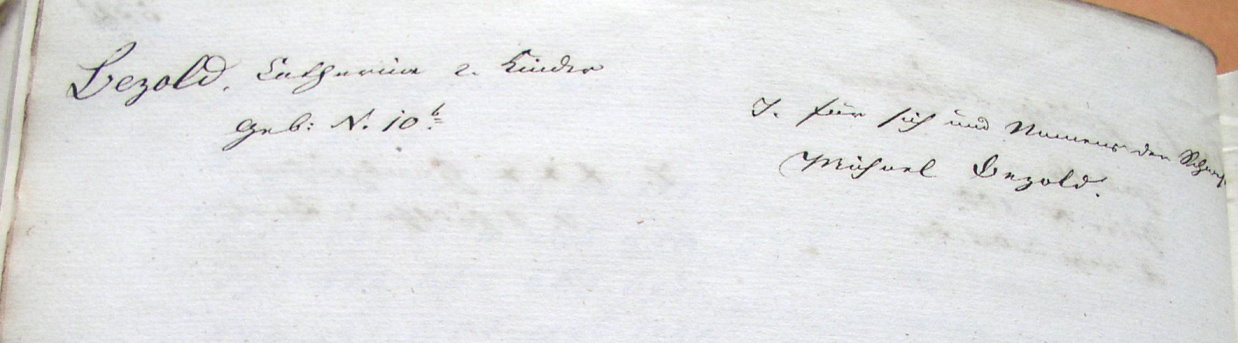 Bezold, Catharina 2. Kinder
Geb: N. 10 b
J. für sich und Namens der
Michael Bezold.